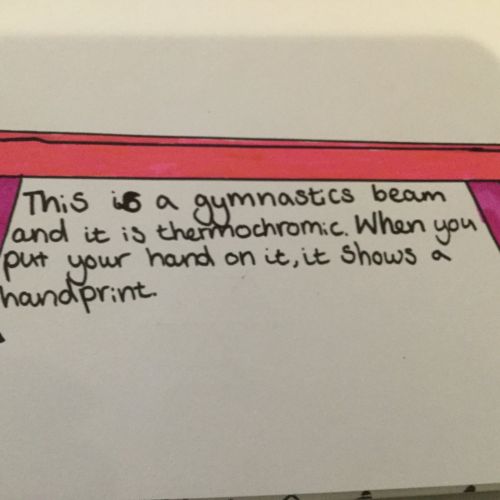 This is a gymnastics beam
and it is thermochromic. When you
put your hand on it, it shows a
handprint.